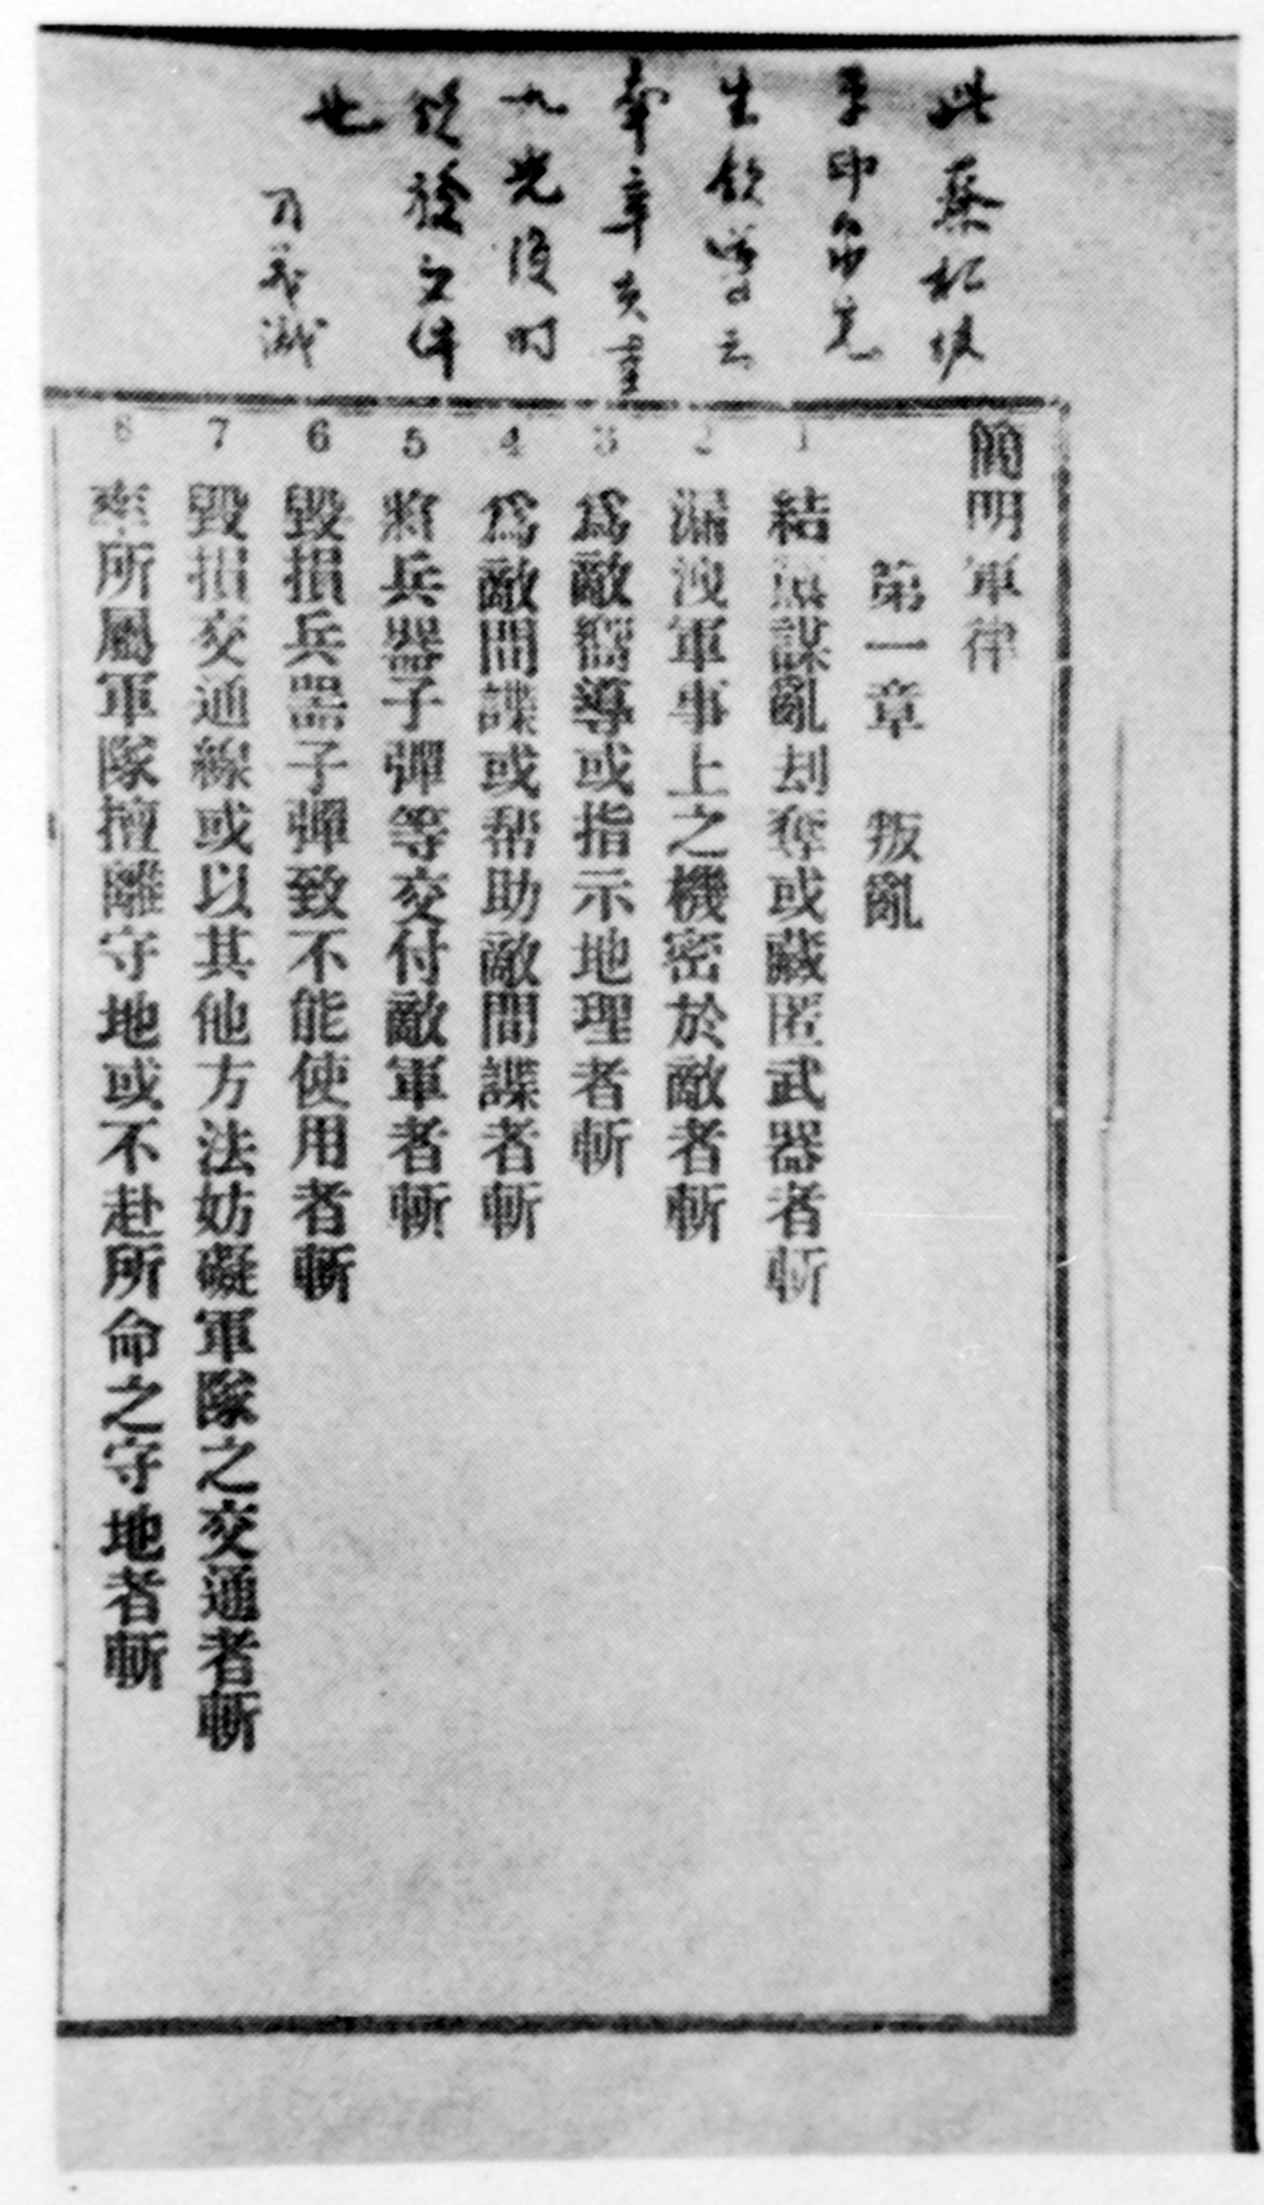 此蔡松坡
先
生 云
南辛亥重
九光復时
發之件
也
簡明軍律
第一章 叛亂
1 結黨謀亂刦奪或藏匿武器者斬
2 漏洩軍事上之機密於敵者斬
3 爲敵嚮導或指示地理者斬
4 爲敵間諜或帮助敵間諜者斬
5 將兵器子彈等交付敵軍者斬
6 毀損兵器子彈致不能使用者斬
7 毀損交通線或以其他方法妨礙軍隊之交通者斬
8 率所屬軍隊擅離守地或不赴所命之守地者斬